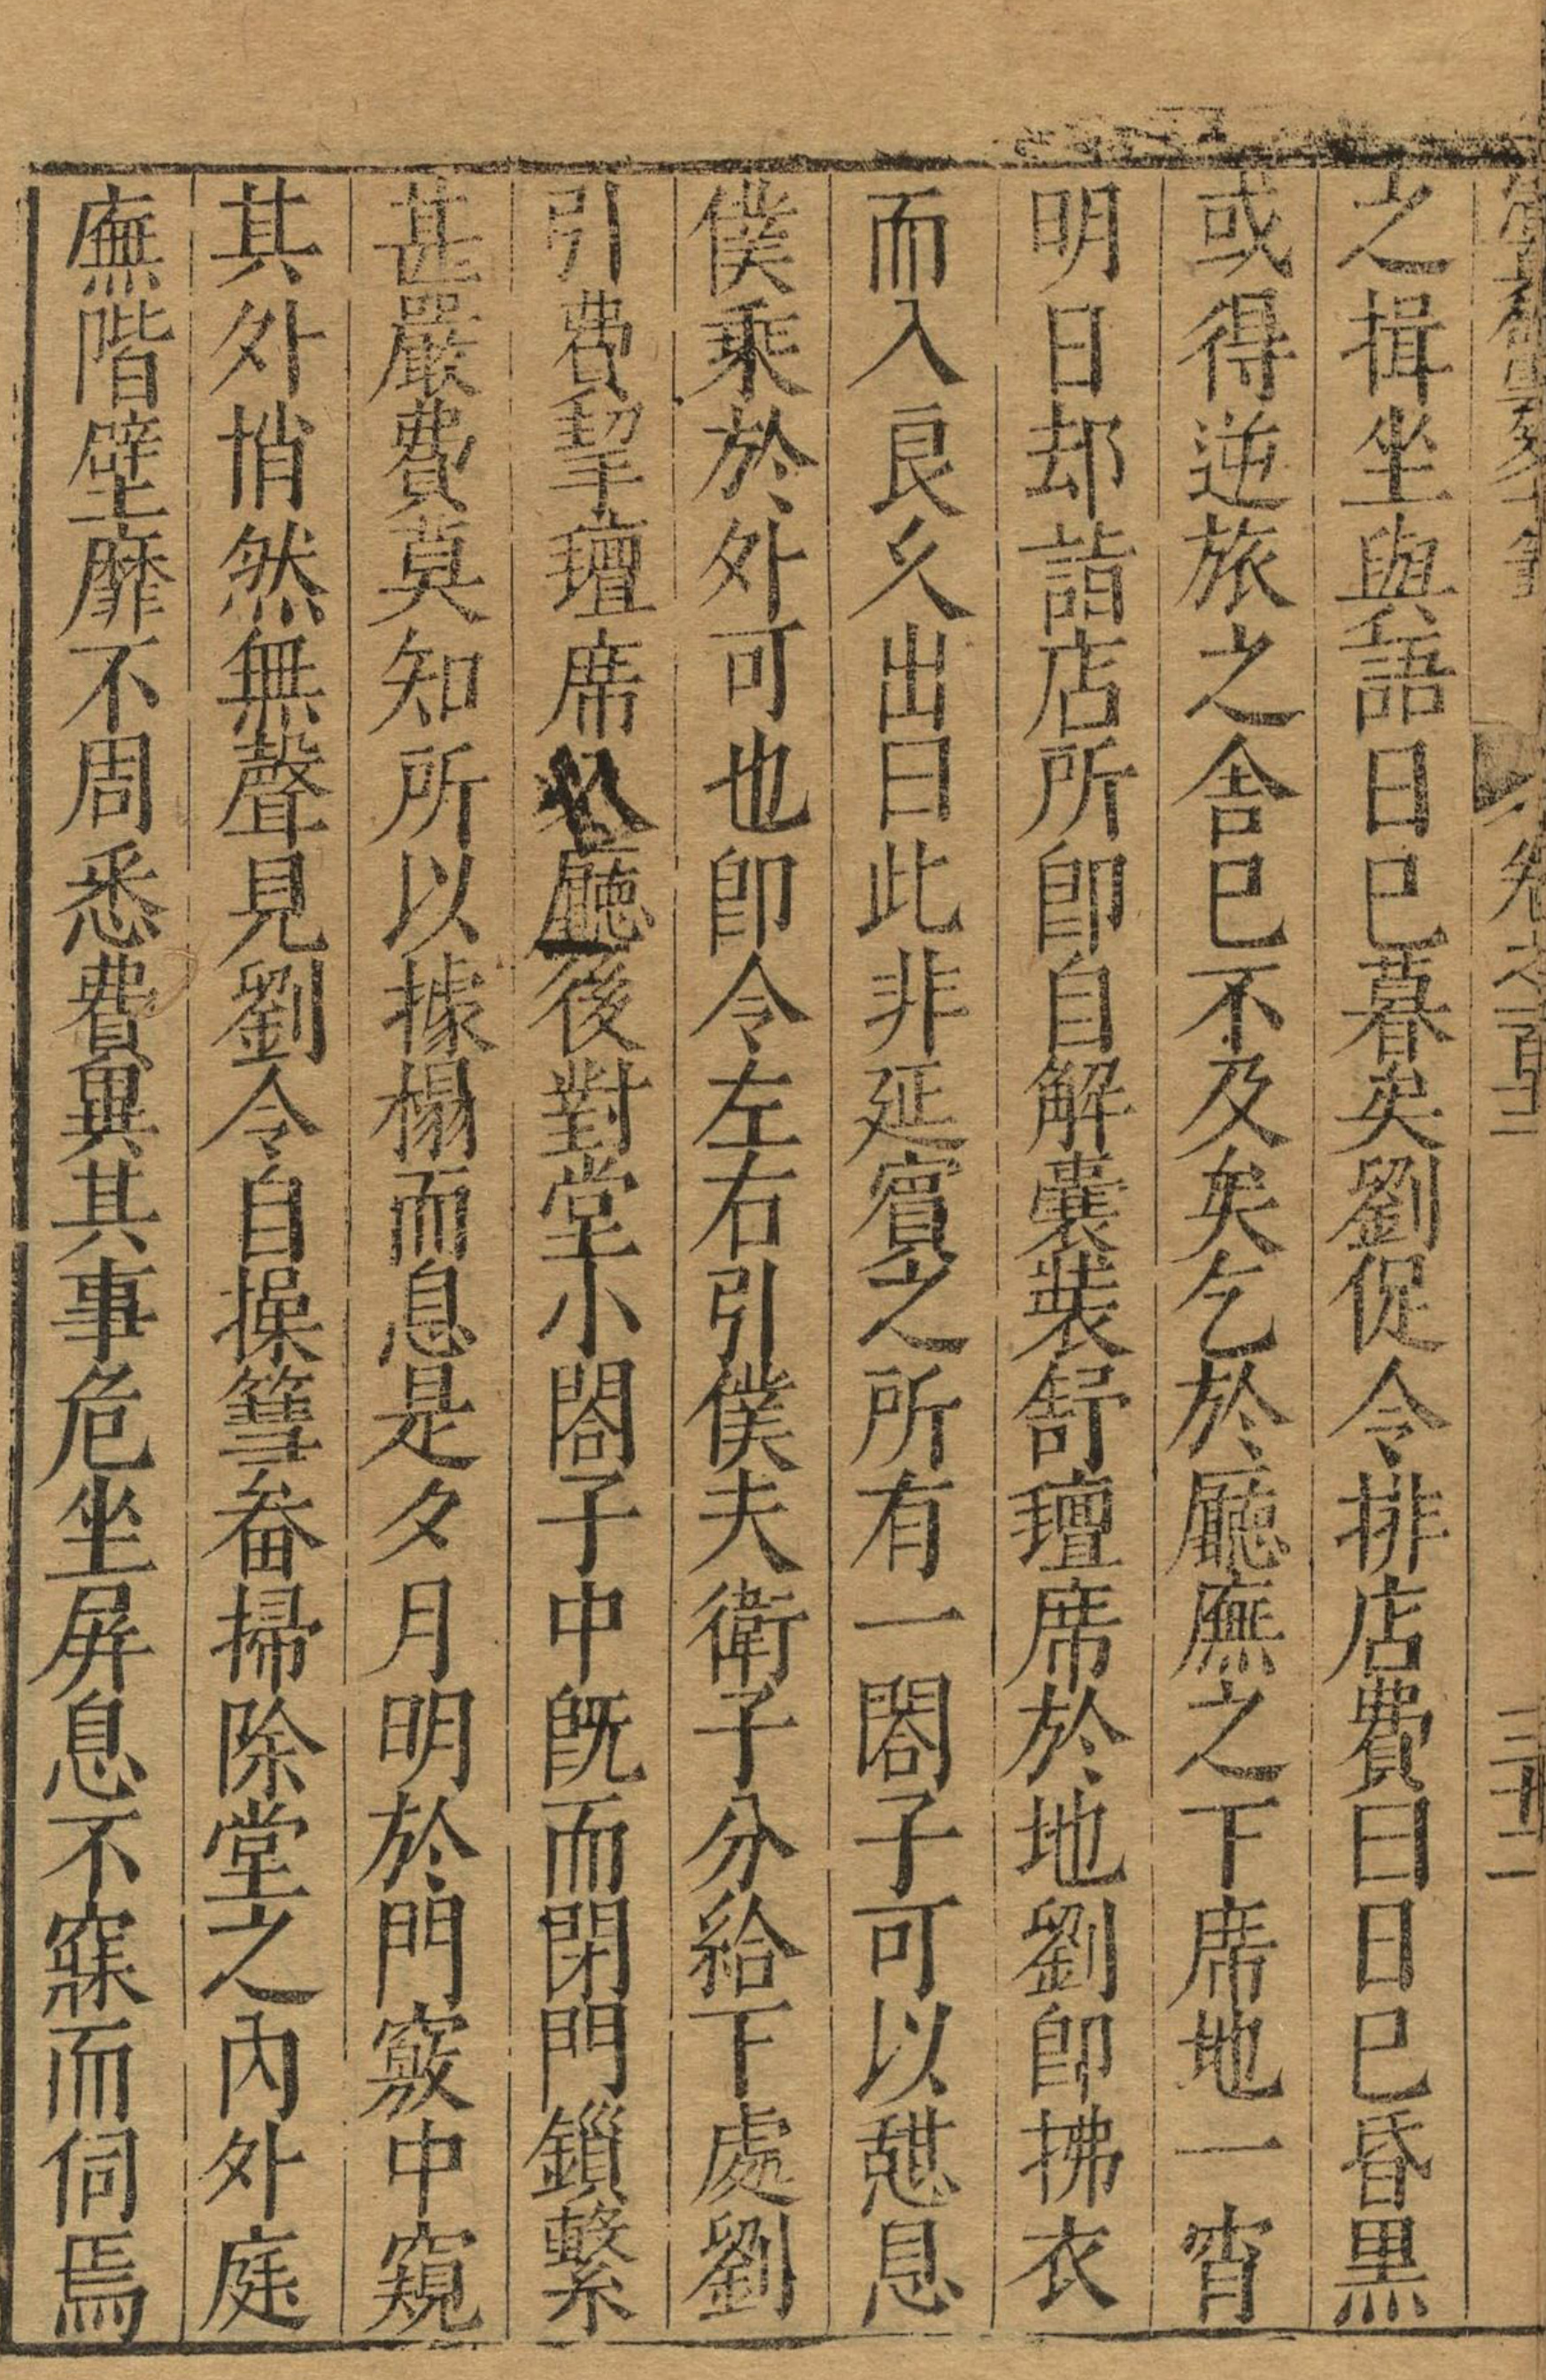 卷之一百十二
三十二
之揖坐與語日已暮矣劉促令排店費曰日已昏黒
或得逆旅之舍已不及矣乞於廳廡之下席地一宵
明日却詣店所即自解囊裝舒氊席於地劉即拂衣
而入良久出曰此非延賓之所有一閤子可以憇息
僕乘於外可也即令左右引僕夫衛子分給下處劉
引費挈氊席入廳後對堂小閤子中既而閉門鎻繫
甚嚴費莫知所以據榻而息是夕月明於門竅中窺
其外悄然無聲見劉令自操篲畚掃除堂之內外庭
廡階壁靡不周悉費異其事危坐屏息不寐而伺焉